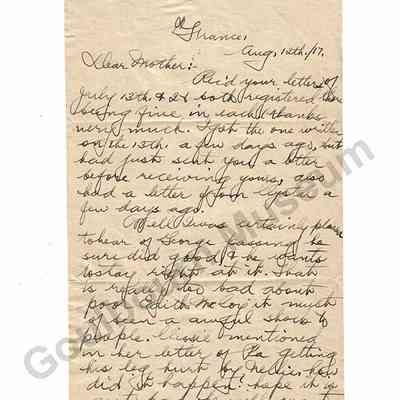 France,
Aug, 12th./17.
Dear Mother:-
Rec'd your letters of
July 13th. & 28 both registered there
being five in each (thanks
very much. I got the one written
on the 15th. a few days ago, but
had just sent you a letter
before receiving yours, also
had a letter from
few days ago.
Well I was certainly
to hear of George passing, he
sure did good & he wants
to stay right at it.
is really too bad about
poor Edith it must
of been a awful shock to
people. Cissie mentioned
in her letter of Pa getting
his leg hurt by Nellie, how
did it happen? hope it is
Goulbourn Museum